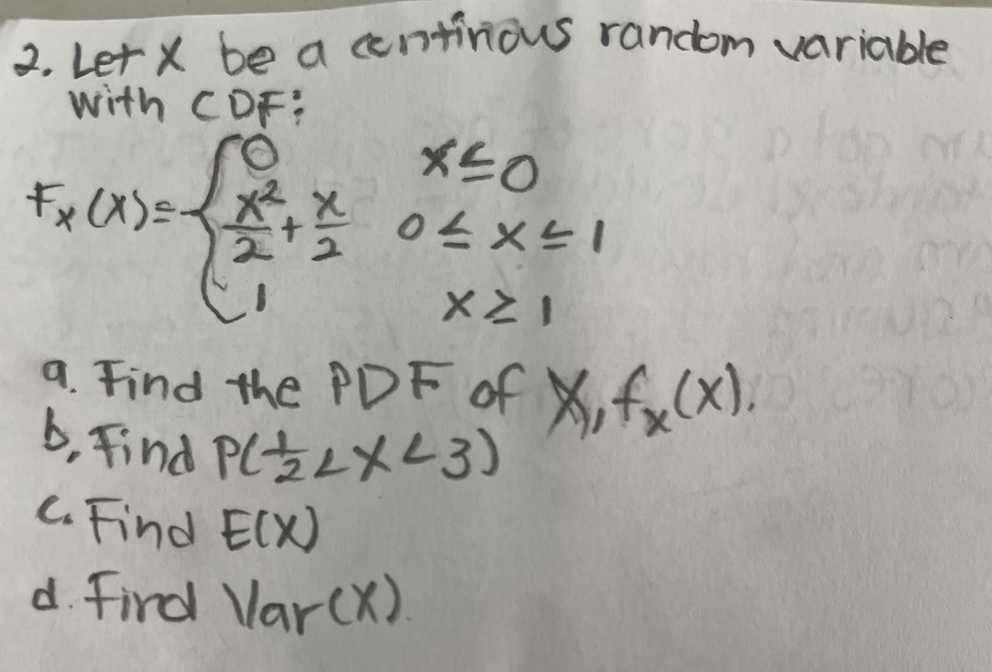 2. Let X be a continous random variable
with CDF:
F_X(X) = { 0 x ≤ 0
x²/2 + x/2 0 ≤ x ≤ 1
1 x ≥ 1
a. Find the PDF of X, f_x(X).
b. Find P(1/2 < X < 3)
c. Find E(X)
d. Find Var(X).